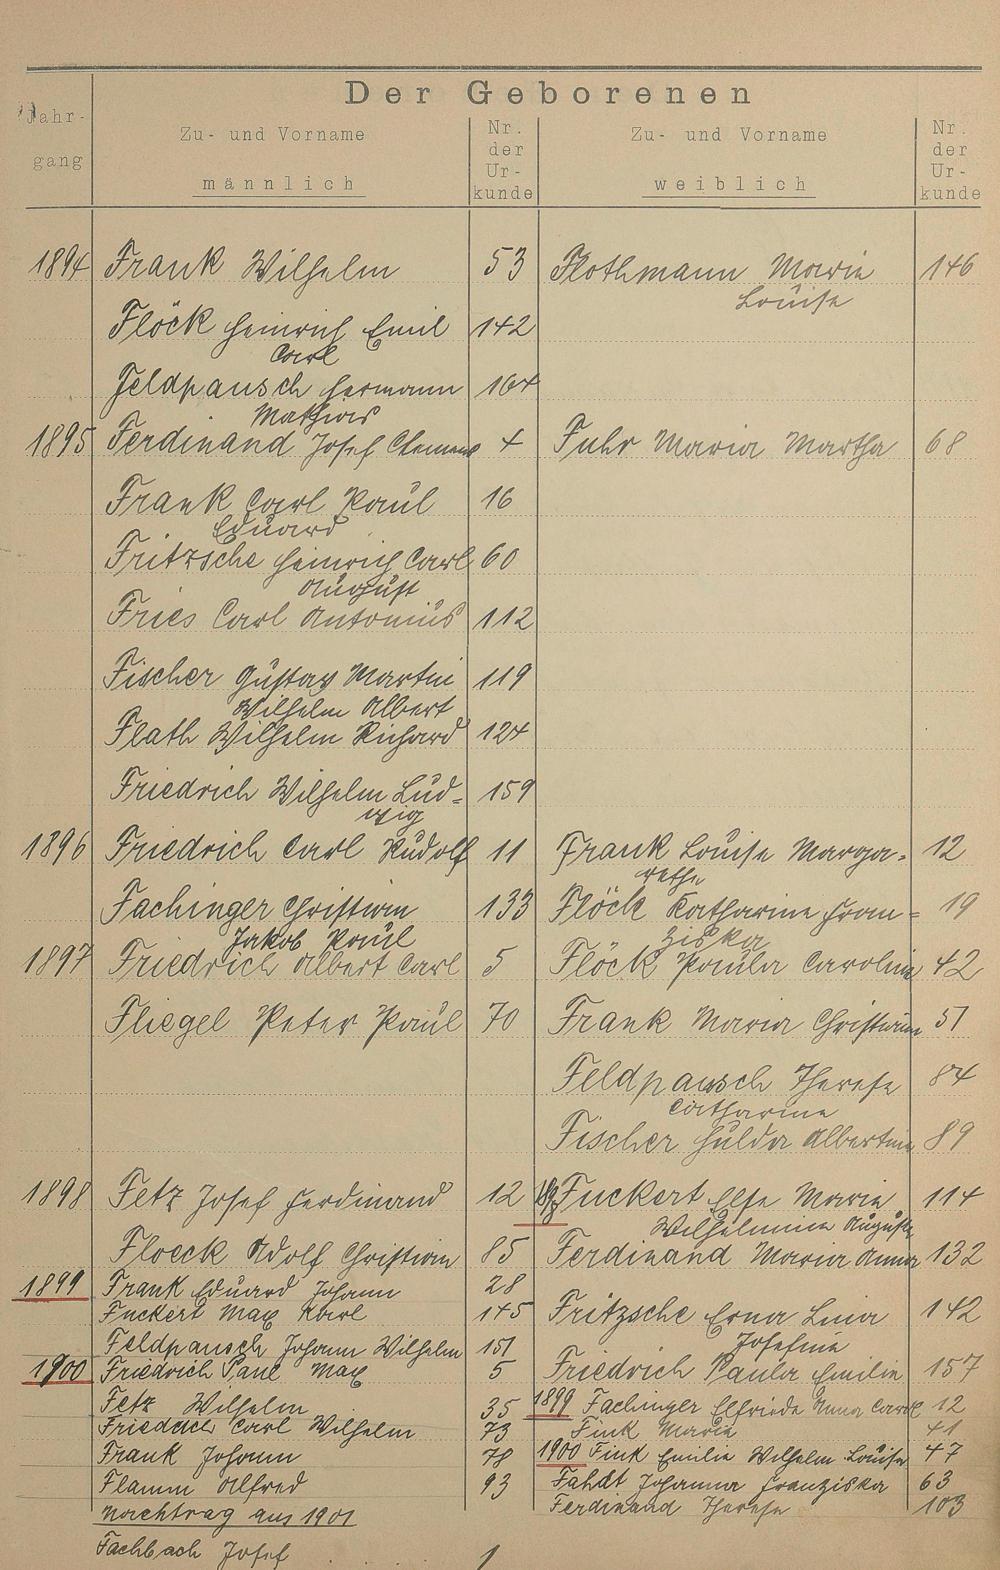 Der Geborenen
Jahr-
gang
Zu- und Vorname
männlich
Nr.
der
Ur-
kunde
Zu- und Vorname
weiblich
Nr.
der
Ur-
kunde
1894 Frank Wilhelm 53 Flothmann Maria 146
Louise
Flöck Heinrich Emil 142
Carl
Feldpausch Hermann 164
Mathias
1895 Ferdinand Josef Clemens 4 Fuhr Maria Martha 68
Frank Carl Paul 16
Eduard
Fritzsche Heinrich Carl 60
August
Fries Carl Antonius 112
Fischer Gustav Martin 119
Wilhelm Albert
Flath Wilhelm Richard 124
Friedrich Wilhelm Lud- 159
wig
1896 Friedrich Carl Rudolf 11 Frank Louise Marga- 12
rethe
Fachinger Christian 133 Flöck Katharine Fran- 19
Jakob Paul ziska
1897 Friedrich Albert Carl 5 Flöck Paula Caroline 42
Fliegel Peter Paul 70 Frank Maria Christiane 51
Feldpausch Therese 84
Catharine
Fischer Hulda Albertine 89
1898 Fetz Josef Ferdinand 12 Fuckert Else Maria 114
Wilhelmine Auguste
Floeck Adolf Christian 85 Ferdinand Maria Anna 132
1899 Frank Eduard Johann 28
Fuckert Max Karl 145 Fritzsche Erna Lina 142
Josefine
Feldpausch Johann Wilhelm 151
1900 Friedrich Paul Max 5 Friedrich Paula Emilie 157
Fetz Wilhelm 35 1899 Fachinger Elfriede Anna 12
Friedrich Carl Wilhelm 73 Fink Maria 41
Frank Johann 78 1900 Fink Emilie Wilhelm. Louise 47
Flamm Alfred 93 Fahdt Johanna Franziska 63
Ferdinand Therese 103
Nachtrag aus 1901
Fachbach Josef 1